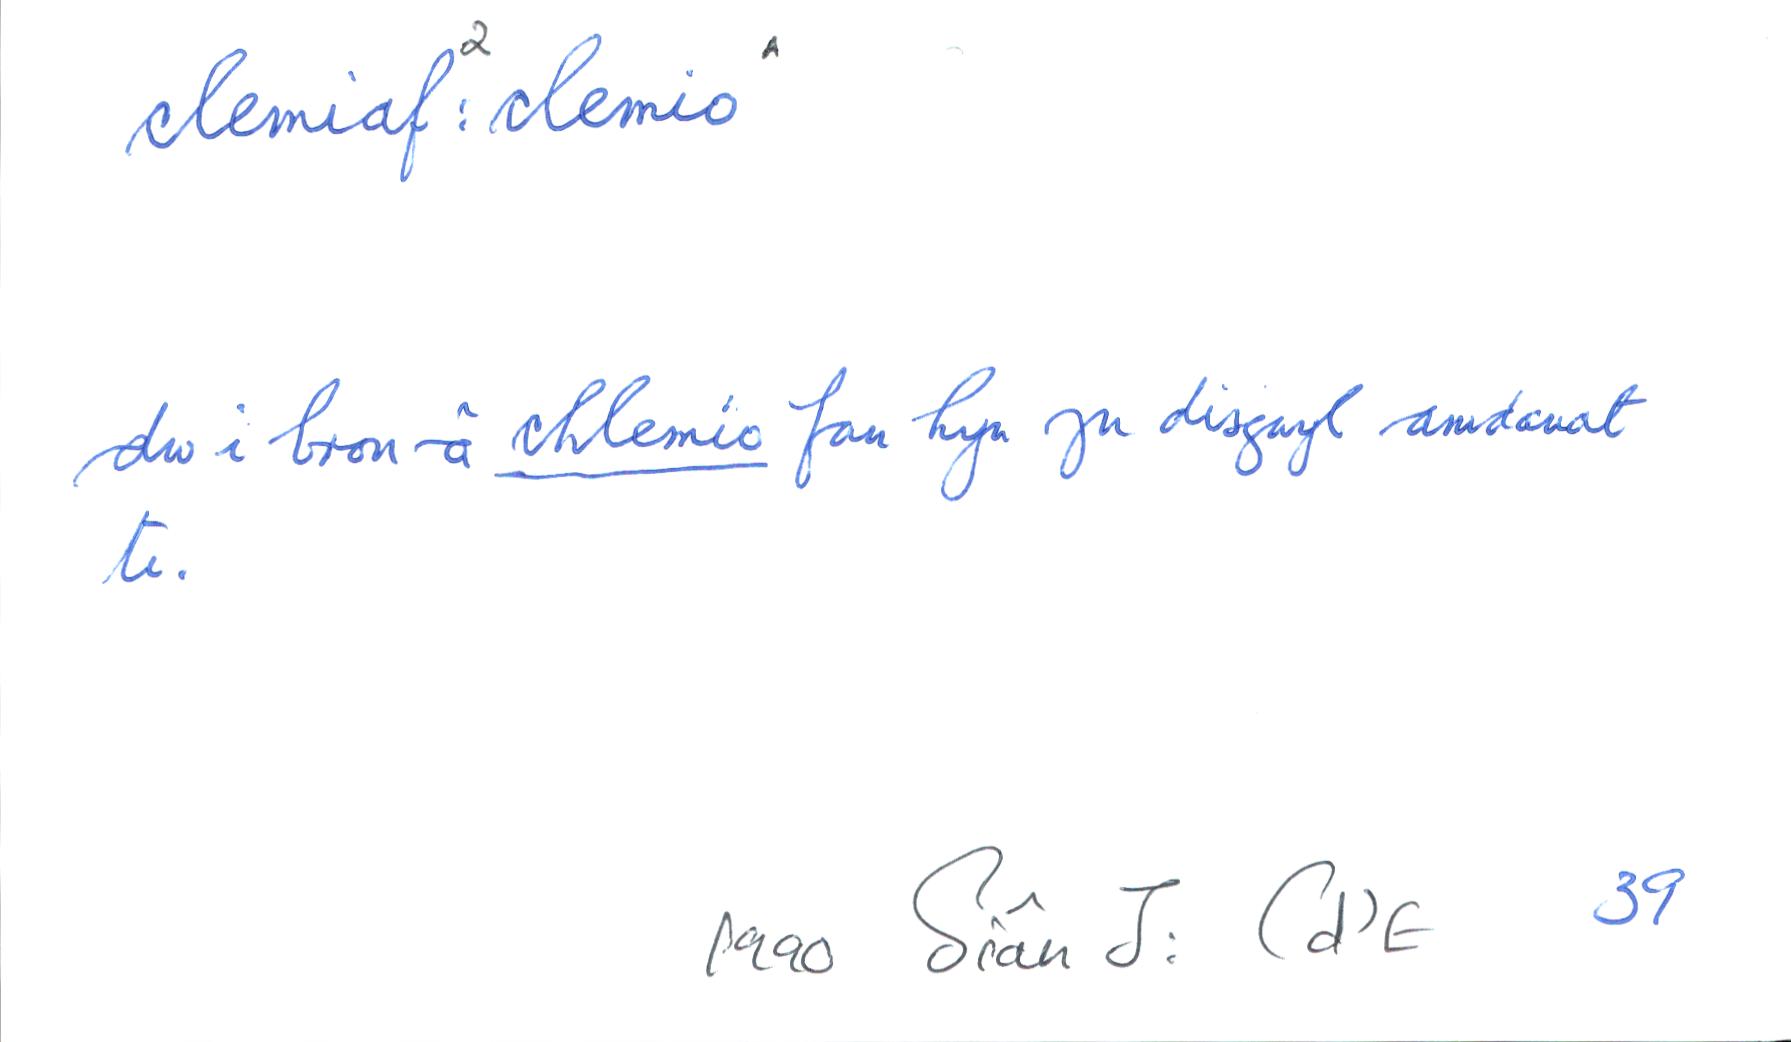 clemiaf²: clemio ᴬ
dw i bron â chlemio fan hyn yn disgwyl amdanat
ti.
1990 Siân J: Cd'E 39